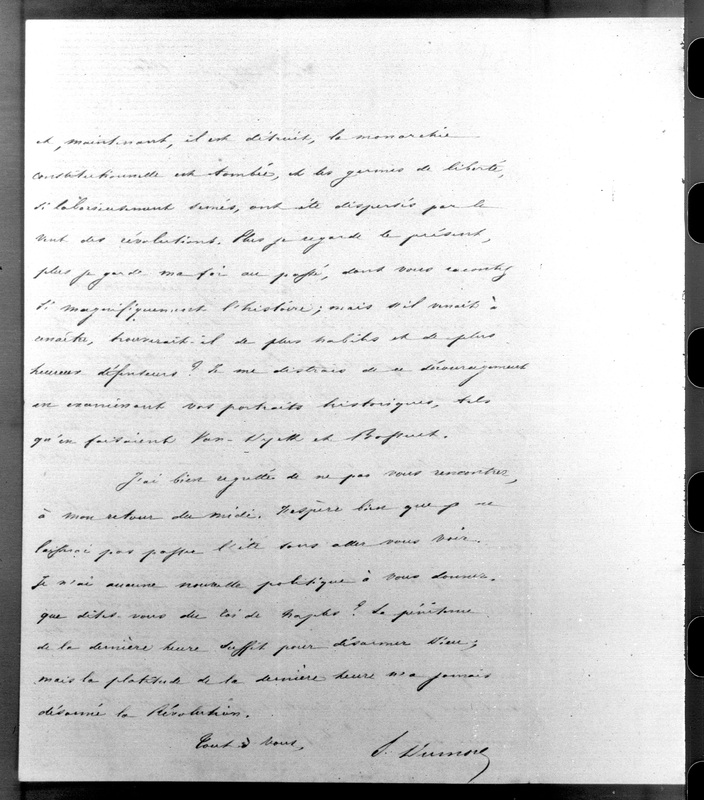 et, maintenant, il est détruit, la monarchie
constitutionnelle est tombée, et les germes de liberté,
si laborieusement semés, ont été dispersés par le
vent des révolutions. Plus je regarde le présent,
plus je garde ma foi au passé, dont vous racontez
si magnifiquement l'histoire; mais s'il venait à
renaître, trouverait-il de plus habiles et de plus
heureux défenseurs? Je me distrais de ce découragement
en examinant vos portraits historiques, tels
qu'en faisaient Van-Dyck et Bossuet.
J'ai bien regretté de ne pas vous rencontrer,
à mon retour du midi. J'espère bien que je ne
laisserai pas passer l'été sans aller vous voir.
Je n'ai aucune nouvelle politique à vous donner.
que dites-vous du roi de Naples? La pénitence
de la dernière heure suffit pour désarmer Dieu;
mais la platitude de la dernière heure n'a jamais
désarmé la Révolution.
Tout à vous,
S. Dumon